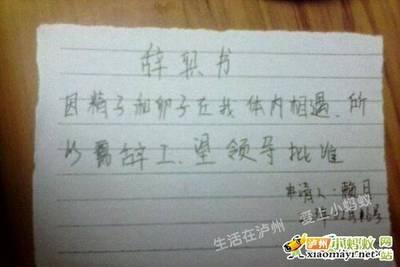 辞职书
因精子和卵子在我体内相遇.所
以需辞工.望领导批准
申请人:赖月
生活在泸州 爱车小蚂蚁
泸州小蚂蚁网站
xiaomayi.net